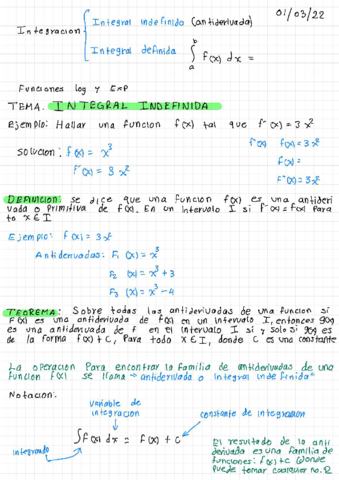 01/03/22
Integracion
Integral indefinida (antiderivada)
Integral definida ∫ₐᵇ f(x) dx =
Funciones log y Exp
TEMA. INTEGRAL INDEFINIDA
Ejemplo: Hallar una funcion f(x) tal que f'(x) = 3x²
Solucion: f(x) = x³
f'(x) = 3x²
f'(x) f(x) = 3x²
f(x) =
F''(x) = 3x²
DEFINICION se dice que una funcion f(x) es una antideri
vada es primitiva de f(x). En un intervalo I si f'(x) = f(x) para
to x ∈ I
Ejemplo: f(x) = 3x²
Antiderivadas: F₁ (x) = x³
F₂ (x) = x³ + 3
F₃ (x) = x³ - 4
TEOREMA: Sobre todas las antiderivadas de una funcion si
F(x) es una antiderivada de f(x) en un intervalo I, entonces g(x)
es una antiderivada de f en el intervalo I si y solo si g(x) es
de la forma f(x) + C, Para todo x ∈ I, donde C es una constante
La operacion Para encontrar la familia de antiderivadas de una
funcion f(x) se llama → antiderivada o integral indefinida"
Notacion:
variable de
integracion
constante de integracion
∫f(x) dx = f(x) + C
integrando
El resultado de la anti
derivada es una familia de
funciones: f(x) + c (donde
puede tomar cualquier no. R